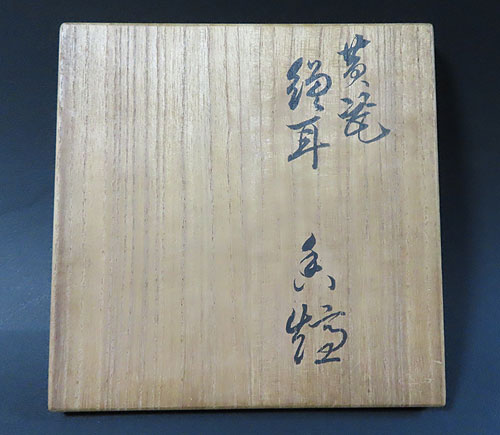 黄瓷
縄耳 香爐